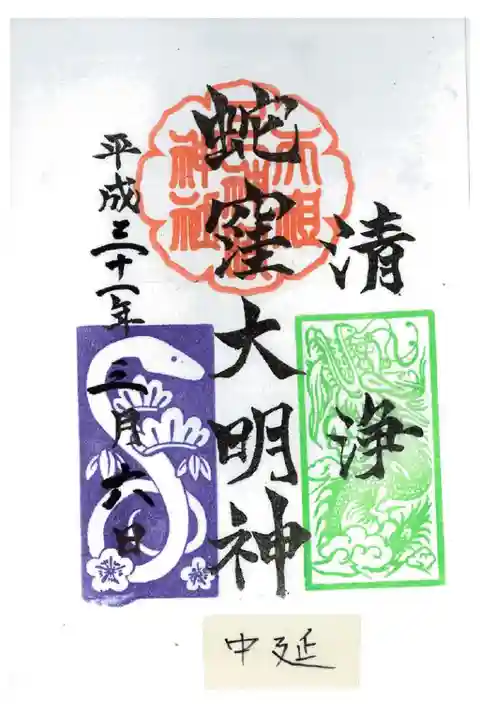 清浄
蛇窪大明神
平成三十一年三月六日
天祖
神社
中延